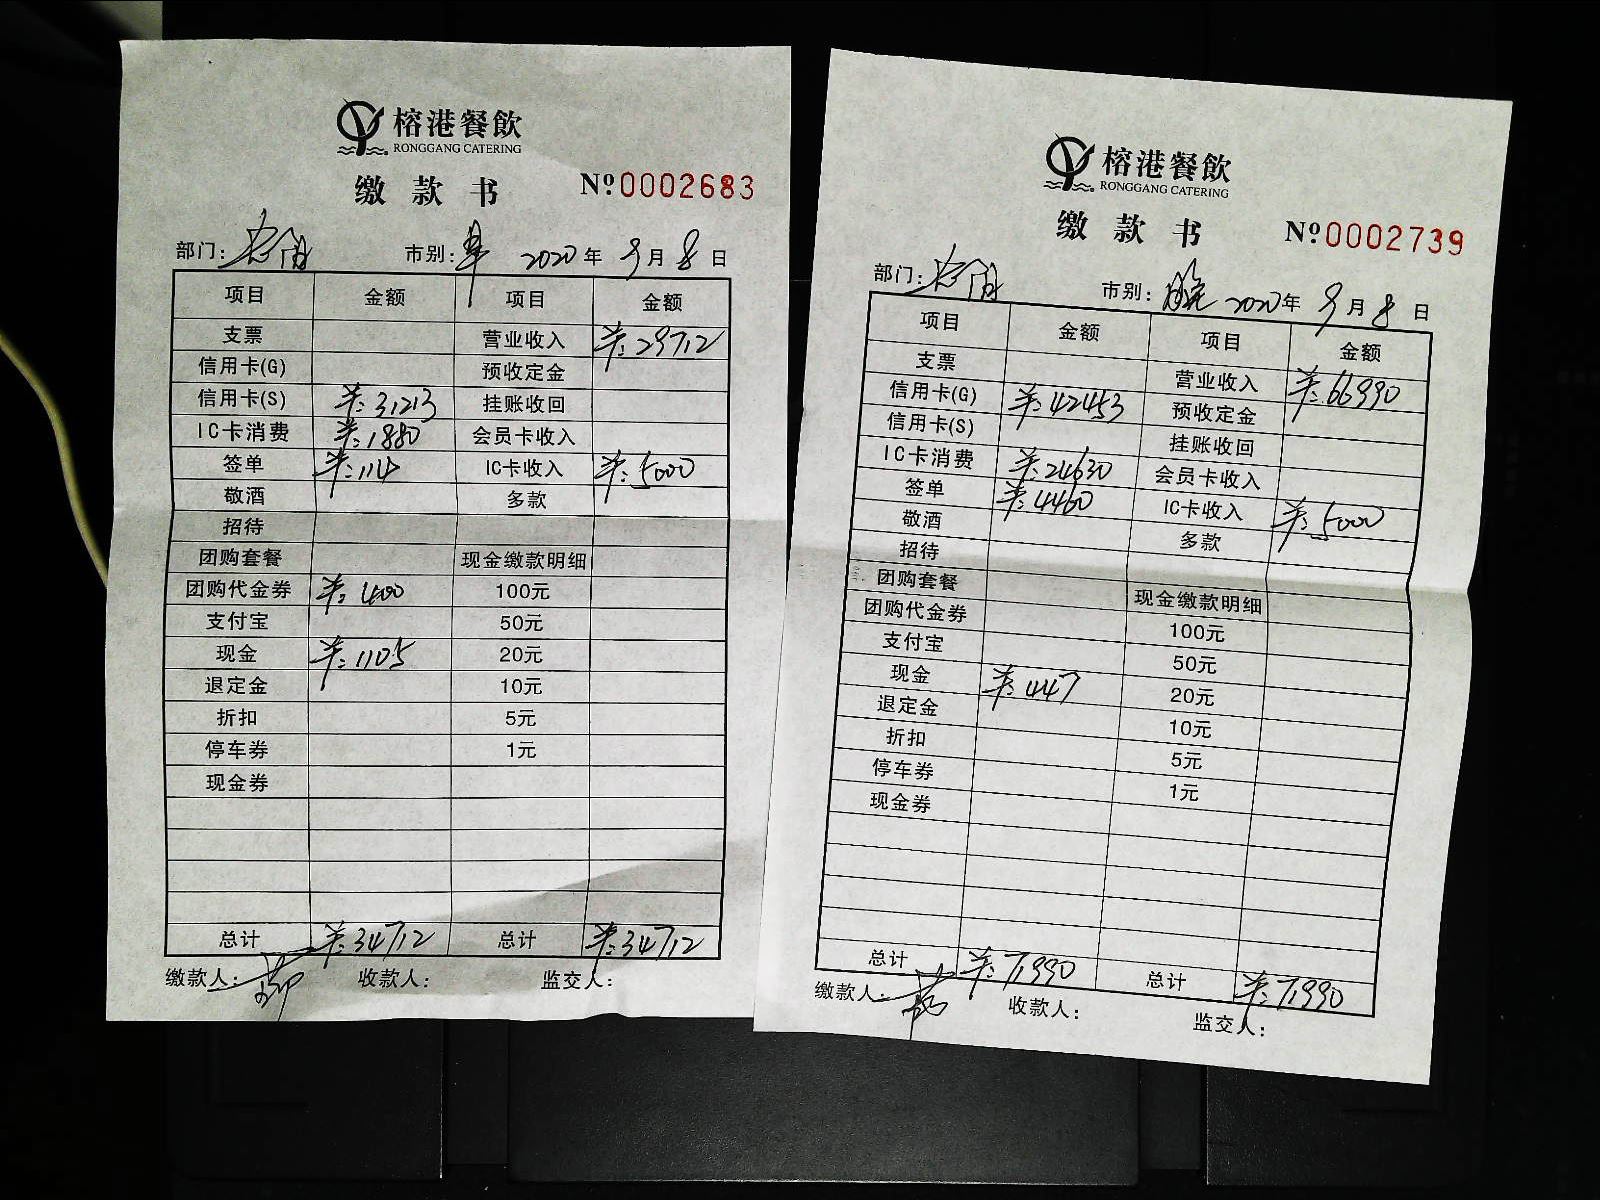 榕港餐飲
RONGGANG CATERING
缴款书 №0002683
部门: 市别: 2020年9月8日
项目 金额 项目 金额
支票 营业收入 ¥:29712
信用卡(G) 预收定金
信用卡(S) ¥:31213 挂账收回
IC卡消费 ¥:1880 会员卡收入
签单 ¥:114 IC卡收入 ¥:5000
敬酒 多款
招待
团购套餐 现金缴款明细
团购代金券 ¥:400 100元
支付宝 50元
现金 ¥:1105 20元
退定金 10元
折扣 5元
停车券 1元
现金券
总计 ¥:34712 总计 ¥:34712
缴款人: 收款人: 监交人:
榕港餐飲
RONGGANG CATERING
缴款书 №0002739
部门: 市别:晚 2020年9月8日
项目 金额 项目 金额
支票 营业收入 ¥:66990
信用卡(G) ¥:42453 预收定金
信用卡(S) 挂账收回
IC卡消费 ¥:24630 会员卡收入
签单 ¥:4460 IC卡收入 ¥:5000
敬酒 多款
招待
团购套餐 现金缴款明细
团购代金券 100元
支付宝 50元
现金 ¥:447 20元
退定金 10元
折扣 5元
停车券 1元
现金券
总计 ¥:71990 总计 ¥:71990
缴款人: 收款人: 监交人: